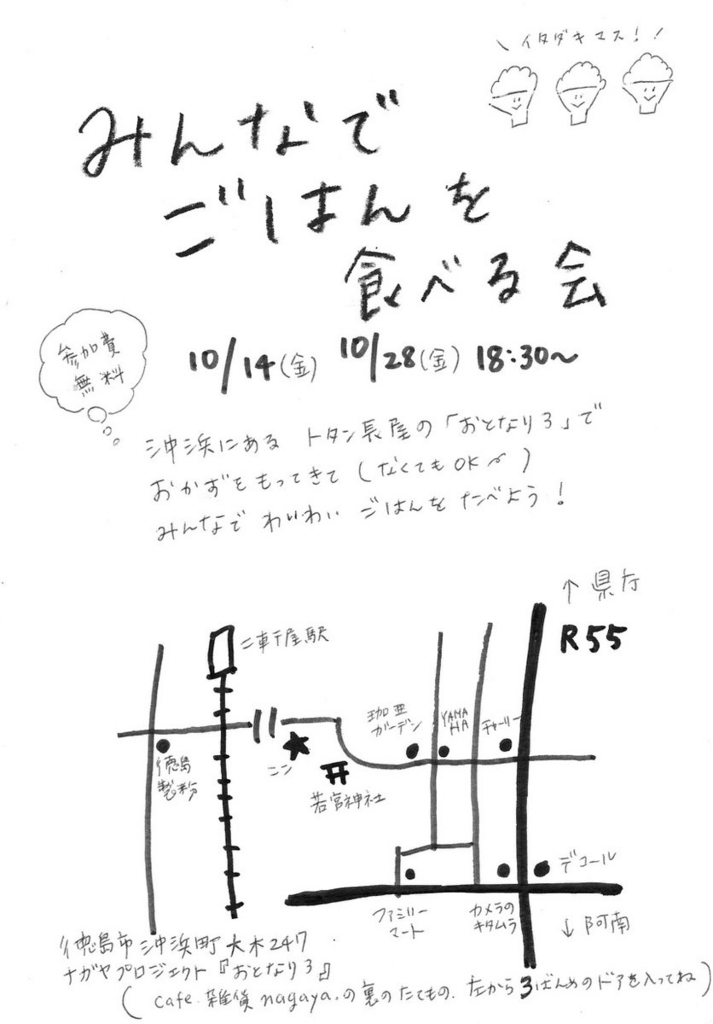 \ イタダキマス! /
みんなで
ごはんを
食べる会
参加費
無料
10/14(金) 10/28(金) 18:30~
沖浜にある トタン長屋の「おとなり3」で
おかずをもってきて(なくてもOK~)
みんなで わいわい ごはんを たべよう!
↑県庁
R55
二軒屋駅
珈亜
ガーデン
YAMA
HA
チャーリー
徳島
製粉
ココ
若宮神社
デコール
ファミリー
マート
カメラの
キタムラ
↓阿南
徳島市沖浜町大木247
ナガヤプロジェクト『おとなり3』
(cafe.雑貨nagaya.の裏のたてもの.左から3ばんめのドアを入ってね)